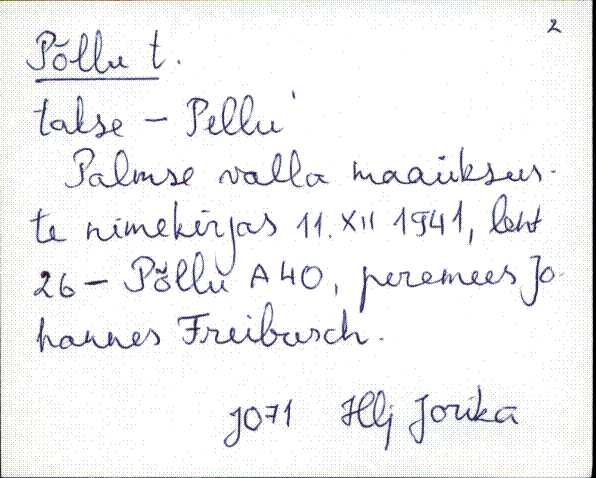 2
Põllu t.
takse – Pellu'
Palmse valla maaüksus-
te nimekirjas 11. XII 1941, leht
26 – Põllu A 40, peremees Jo-
hannes Freibusch.
J071 Hlj Jorika